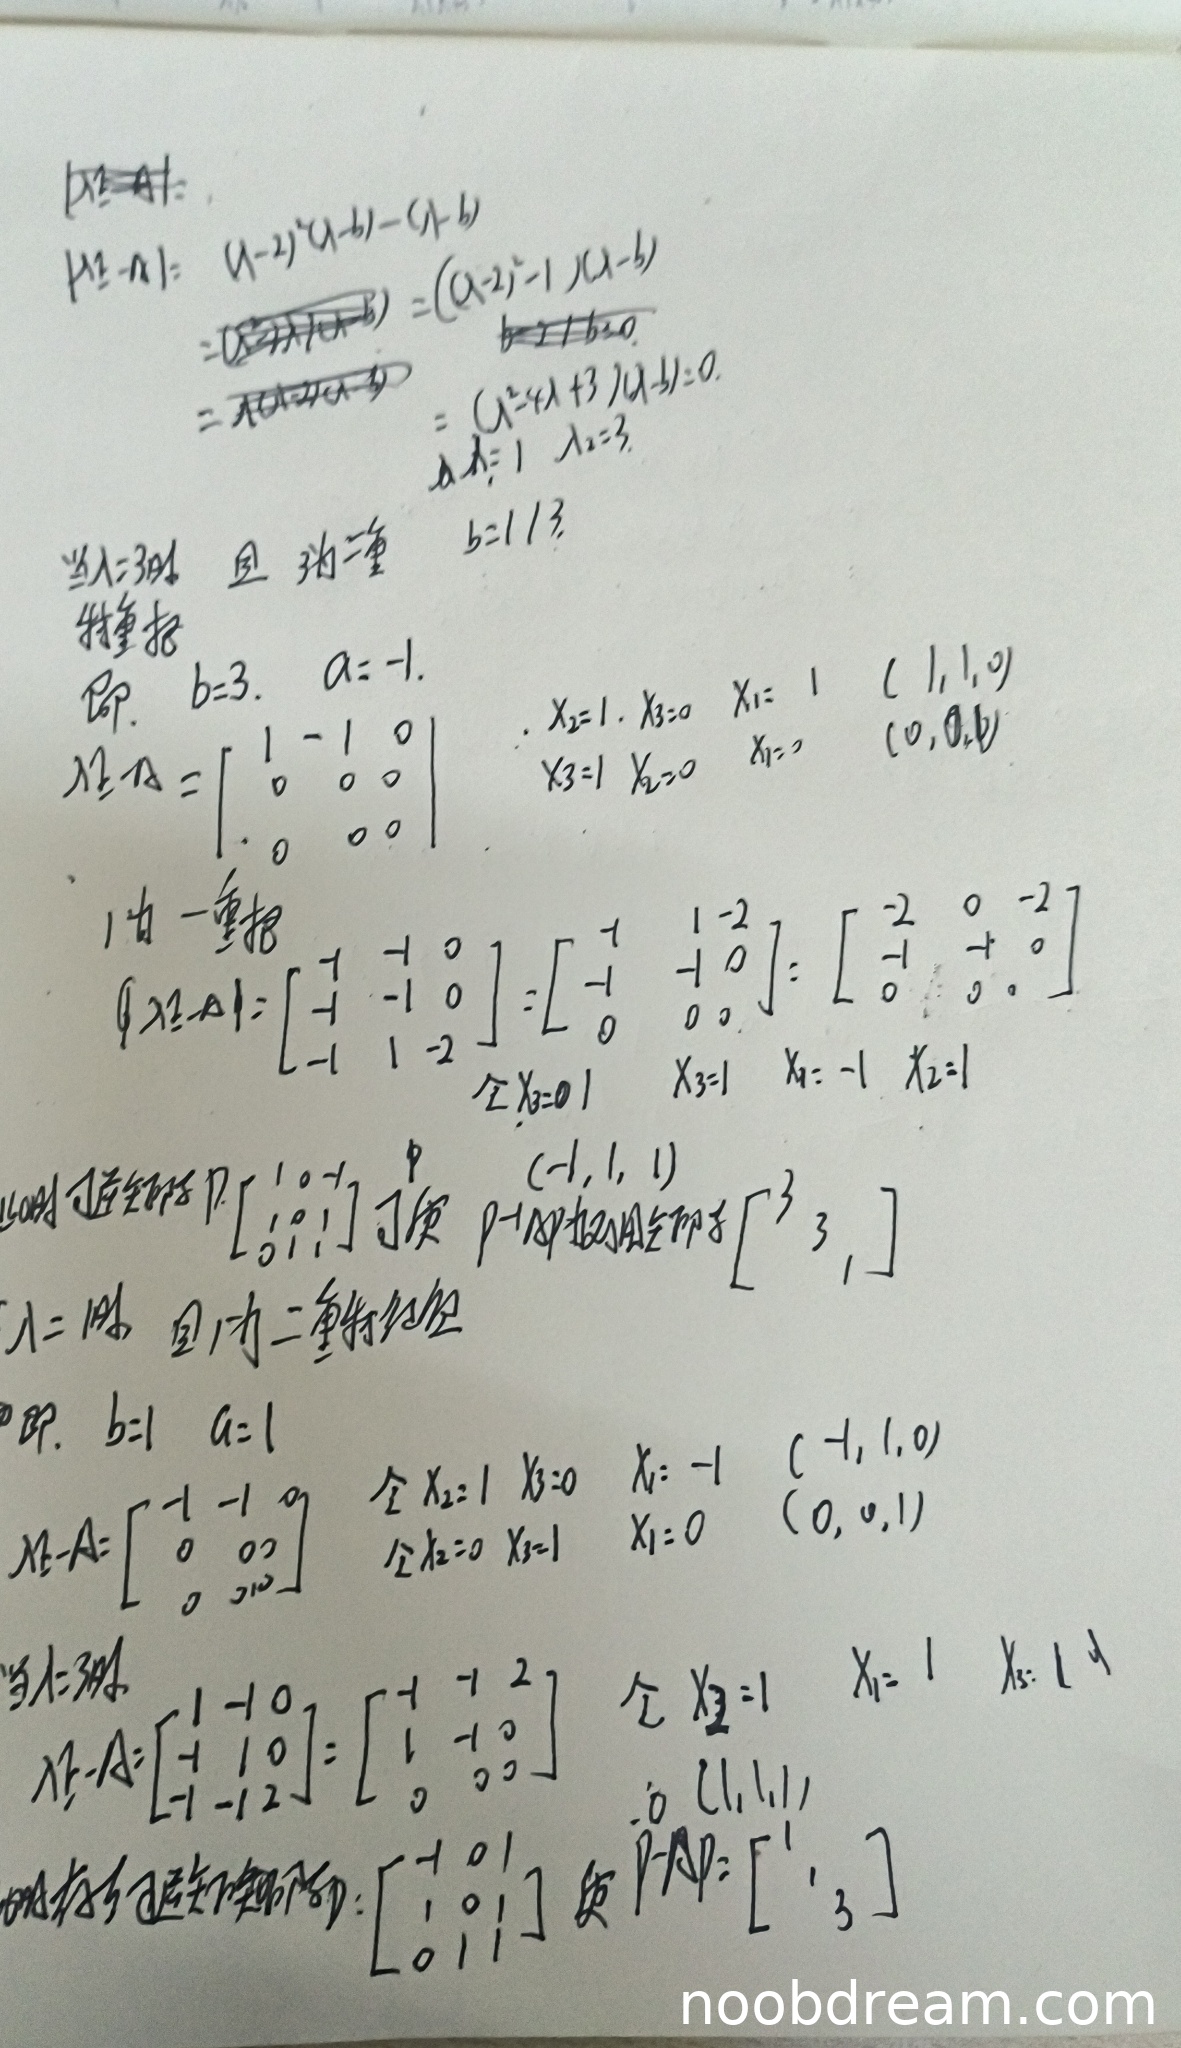 |λE-A|= (λ-2)²(λ-b)-(λ-b)
=((λ-2)²-1)(λ-b)
=(λ²-4λ+3)(λ-b)=0.
λ₁=1 λ₂=3.
b=1/3.
当λ=3时 且 3为二重
特重根
即. b=3. a=-1.
λE-A= [1 -1 0
0 0 0
0 0 0]
x₂=1. x₃=0 x₁=1 (1,1,0)
x₃=1 x₂=0 x₁=0 (0,0,1)
1为一重根
λE-A = [-1 -1 0
-1 -1 0
-1 1 -2]
= [-1 1 -2
-1 -1 0
0 0 0]
= [-2 0 -2
-1 -1 0
0 0 0]
令x₃=1 x₃=1 x₁=-1 x₂=1
(-1,1,1)
此时可逆矩阵P. [1 0 -1
1 0 1
0 1 1]
可使 P-1AP为对角矩阵 [3
3
1]
λ=1时 且1为二重特征值
即. b=1 a=1
λE-A= [-1 -1 0
0 0 0
0 0 0]
令x₂=1 x₃=0 x₁=-1 (-1,1,0)
令x₂=0 x₃=1 x₁=0 (0,0,1)
当λ=3时
λE-A= [1 -1 0
-1 1 0
-1 -1 2]
= [-1 -1 2
1 -1 0
0 0 0]
令 x₂=1 x₁=1 x₃=1
(1,1,1)
可逆矩阵P: [-1 0 1
1 0 1
0 1 1]
使 P-AP= [1
1
3]
noobdream.com